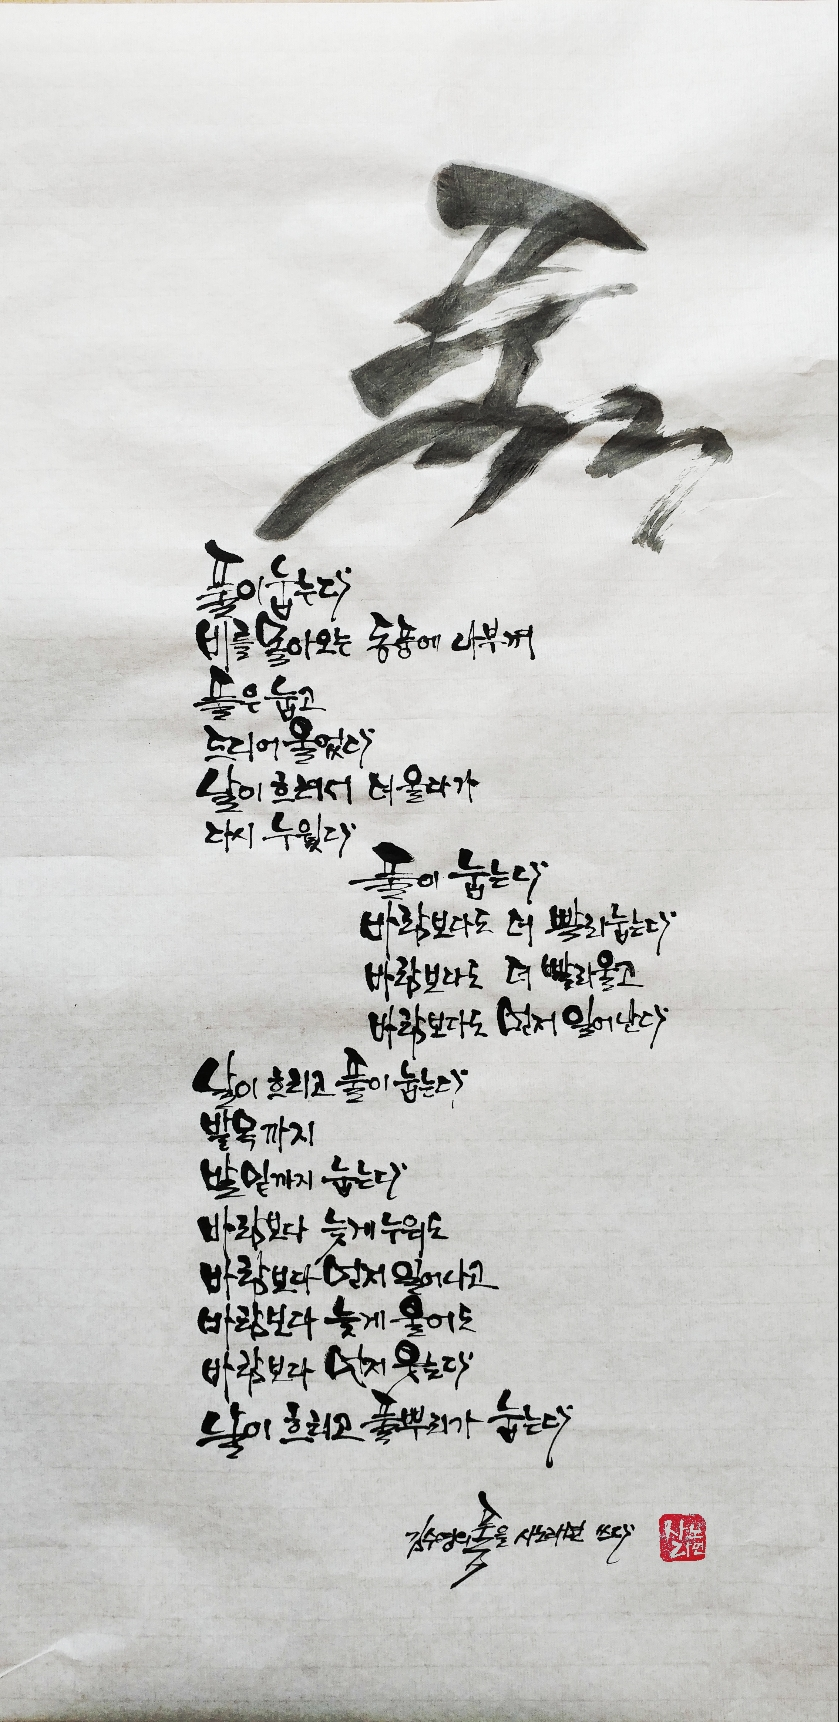 풀
풀이 눕는다
비를 몰아오는 동풍에 나부껴
풀은 눕고
드디어 울었다
날이 흐려서 더 울다가
다시 누웠다
풀이 눕는다
바람보다도 더 빨리 눕는다
바람보다도 더 빨리 울고
바람보다도 먼저 일어난다
날이 흐리고 풀이 눕는다
발목까지
발밑까지 눕는다
바람보다 늦게 누워도
바람보다 먼저 일어나고
바람보다 늦게 울어도
바람보다 먼저 웃는다
날이 흐리고 풀뿌리가 눕는다
김수영의 풀을 사노라면 쓰다
사노라면